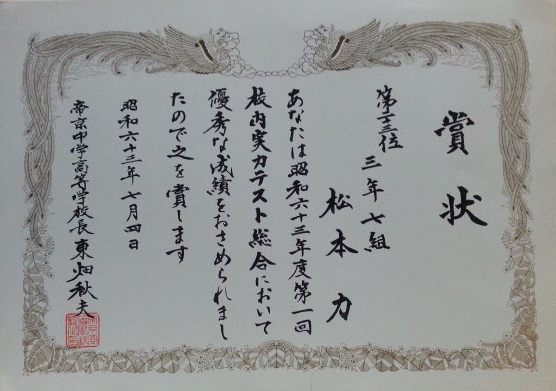 賞状
第十三位
三年七組
松本力
あなたは昭和六十三年度第一回
校内実力テスト総合において
優秀な成績をおさめられまし
たので之を賞します
昭和六十三年七月四日
帝京中学高等学校長 東畑秋夫